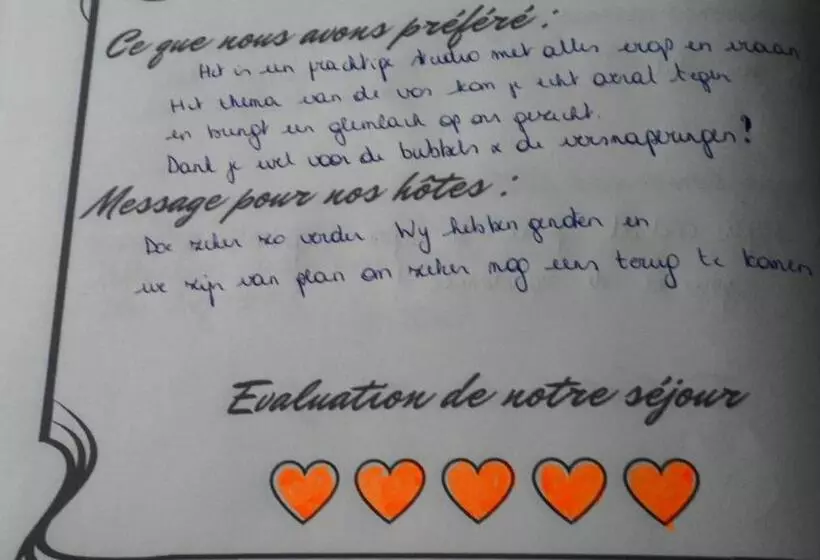 Ce que nous avons préféré :
Het is een prachtige studio met alles erop en eraan
Het thema van de vos kom je echt overal tegen
en brengt een glimlach op ons gezicht.
Dank je wel voor de bubbels & de versnaperingen!
Message pour nos hôtes :
Doe zeker zo verder. Wij hebben genoten en
we zijn van plan om zeker nog eens terug te komen
Evaluation de notre séjour